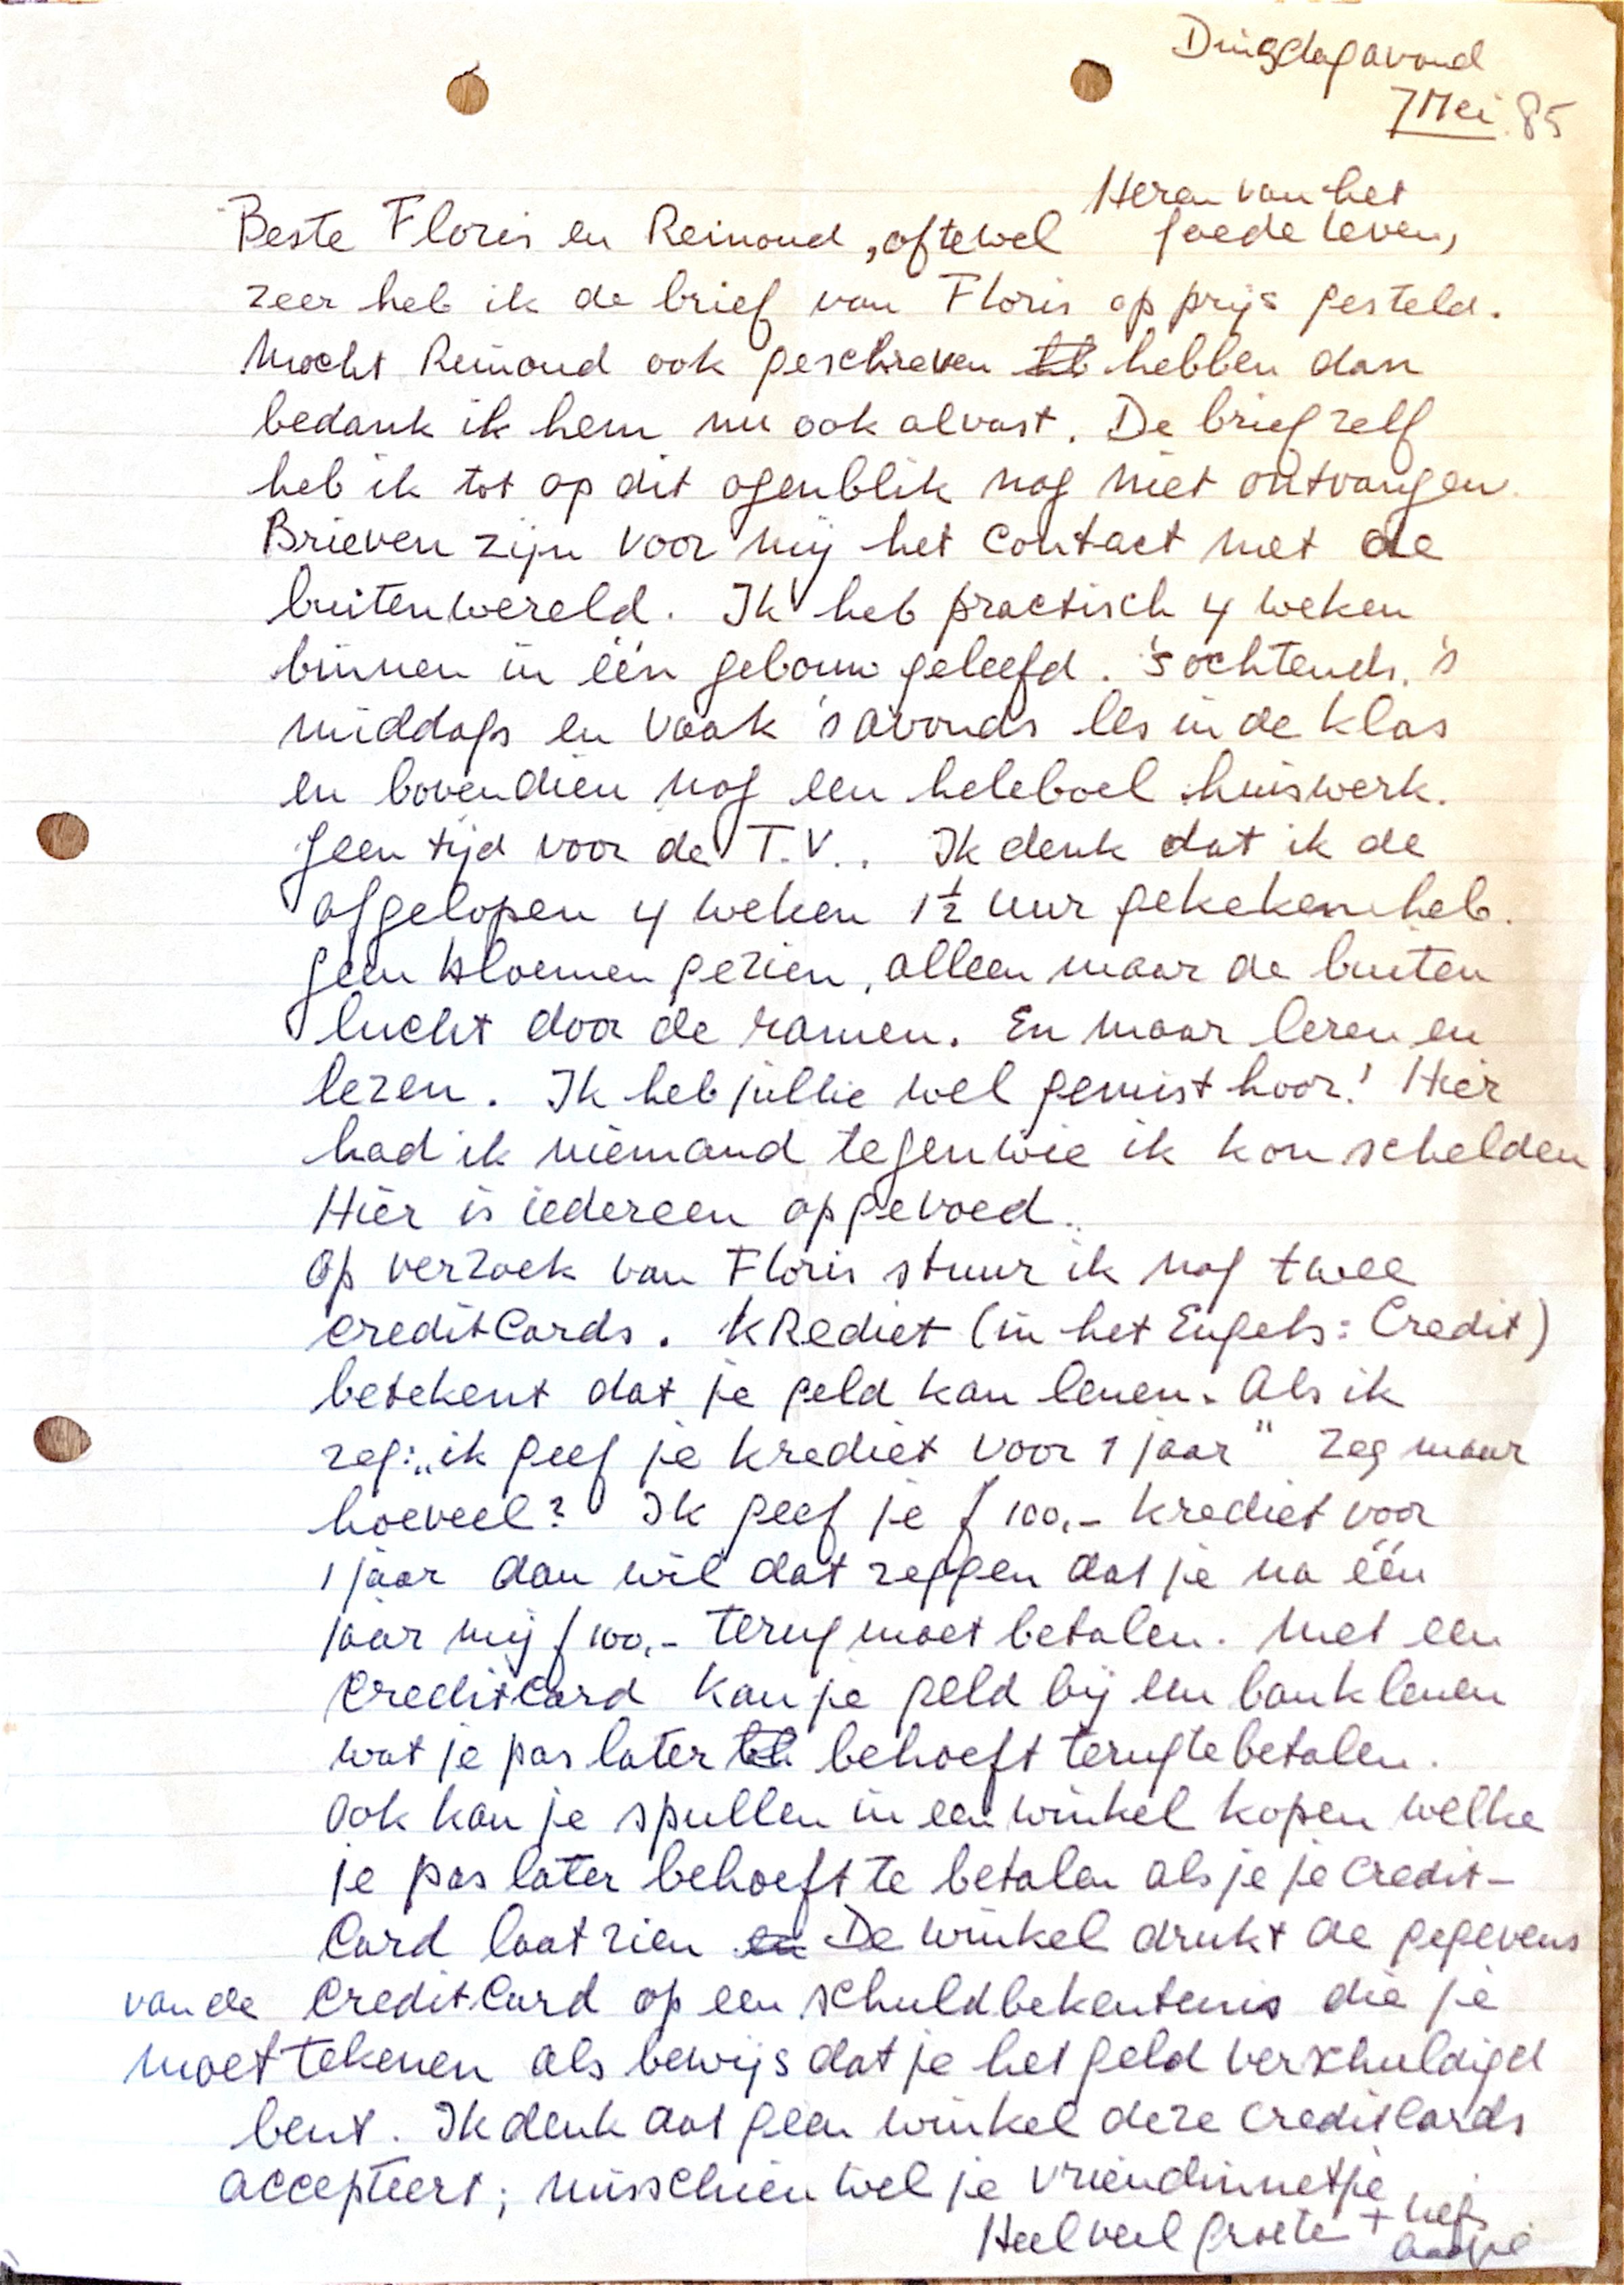 Dingsdagavond
7 Mei. 85
Heren van het
Beste Floris en Reinoud, oftewel goede leven,
zeer heb ik de brief van Floris op prijs gesteld.
Mocht Reinoud ook geschreven hebben dan
bedank ik hem nu ook alvast. De brief zelf
heb ik tot op dit ogenblik nog niet ontvangen.
Brieven zijn voor mij het contact met de
buitenwereld. Ik heb practisch 4 weken
binnen in één gebouw geleefd. 's ochtends, 's
middags en vaak 's avonds les in de klas
en bovendien nog een heleboel huiswerk.
Geen tijd voor de T.V.. Ik denk dat ik de
afgelopen 4 weken 1½ uur gekeken heb.
Geen bloemen gezien, alleen maar de buiten
lucht door de ramen. En maar leren en
lezen. Ik heb jullie wel gemist hoor! Hier
had ik niemand tegen wie ik kon schelden
Hier is iedereen opgevoed.
Op verzoek van Floris stuur ik nog twee
creditCards. kRediet (in het Engels: Credit)
betekent dat je geld kan lenen. Als ik
zeg: „ik geef je krediet voor 1 jaar" zeg maar
hoeveel? Ik geef je ƒ 100,- krediet voor
1 jaar dan wil dat zeggen dat je na één
jaar mij ƒ 100,- terug moet betalen. Met een
creditCard kan je geld bij een bank lenen
wat je pas later behoeft terug te betalen.
Ook kan je spullen in een winkel kopen welke
je pas later behoeft te betalen als je je credit-
Card laat zien en De winkel drukt de gegevens
van de CreditCard op een schuldbekentenis die je
moet tekenen als bewijs dat je het geld verschuldigd
bent. Ik denk dat geen winkel deze creditcards
accepteert; misschien wel je vriendinnetje
Heel veel groete +